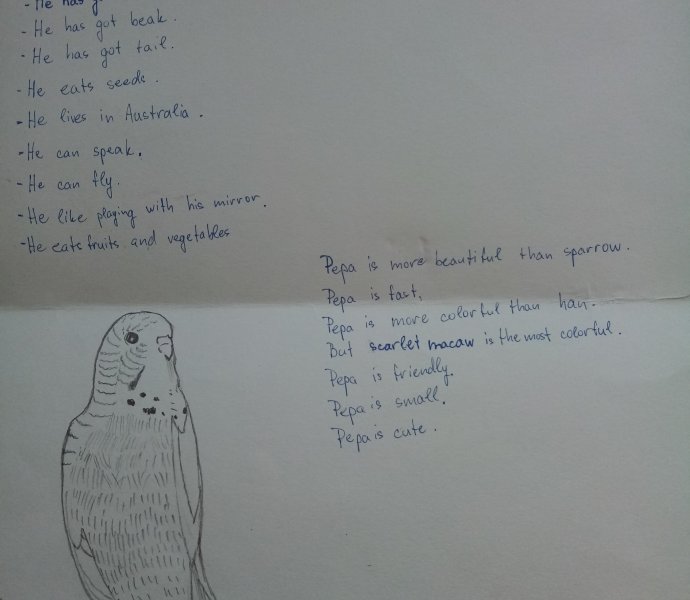 - He has g
- He has got beak.
- He has got tail.
- He eats seeds.
- He lives in Australia.
- He can speak.
- He can fly.
- He like playing with his mirror.
- He eats fruits and vegetables
Pepa is more beautiful than sparrow.
Pepa is fast,
Pepa is more colorful than han.
But scarlet macaw is the most colorful.
Pepa is friendly.
Pepa is small.
Pepa is cute.